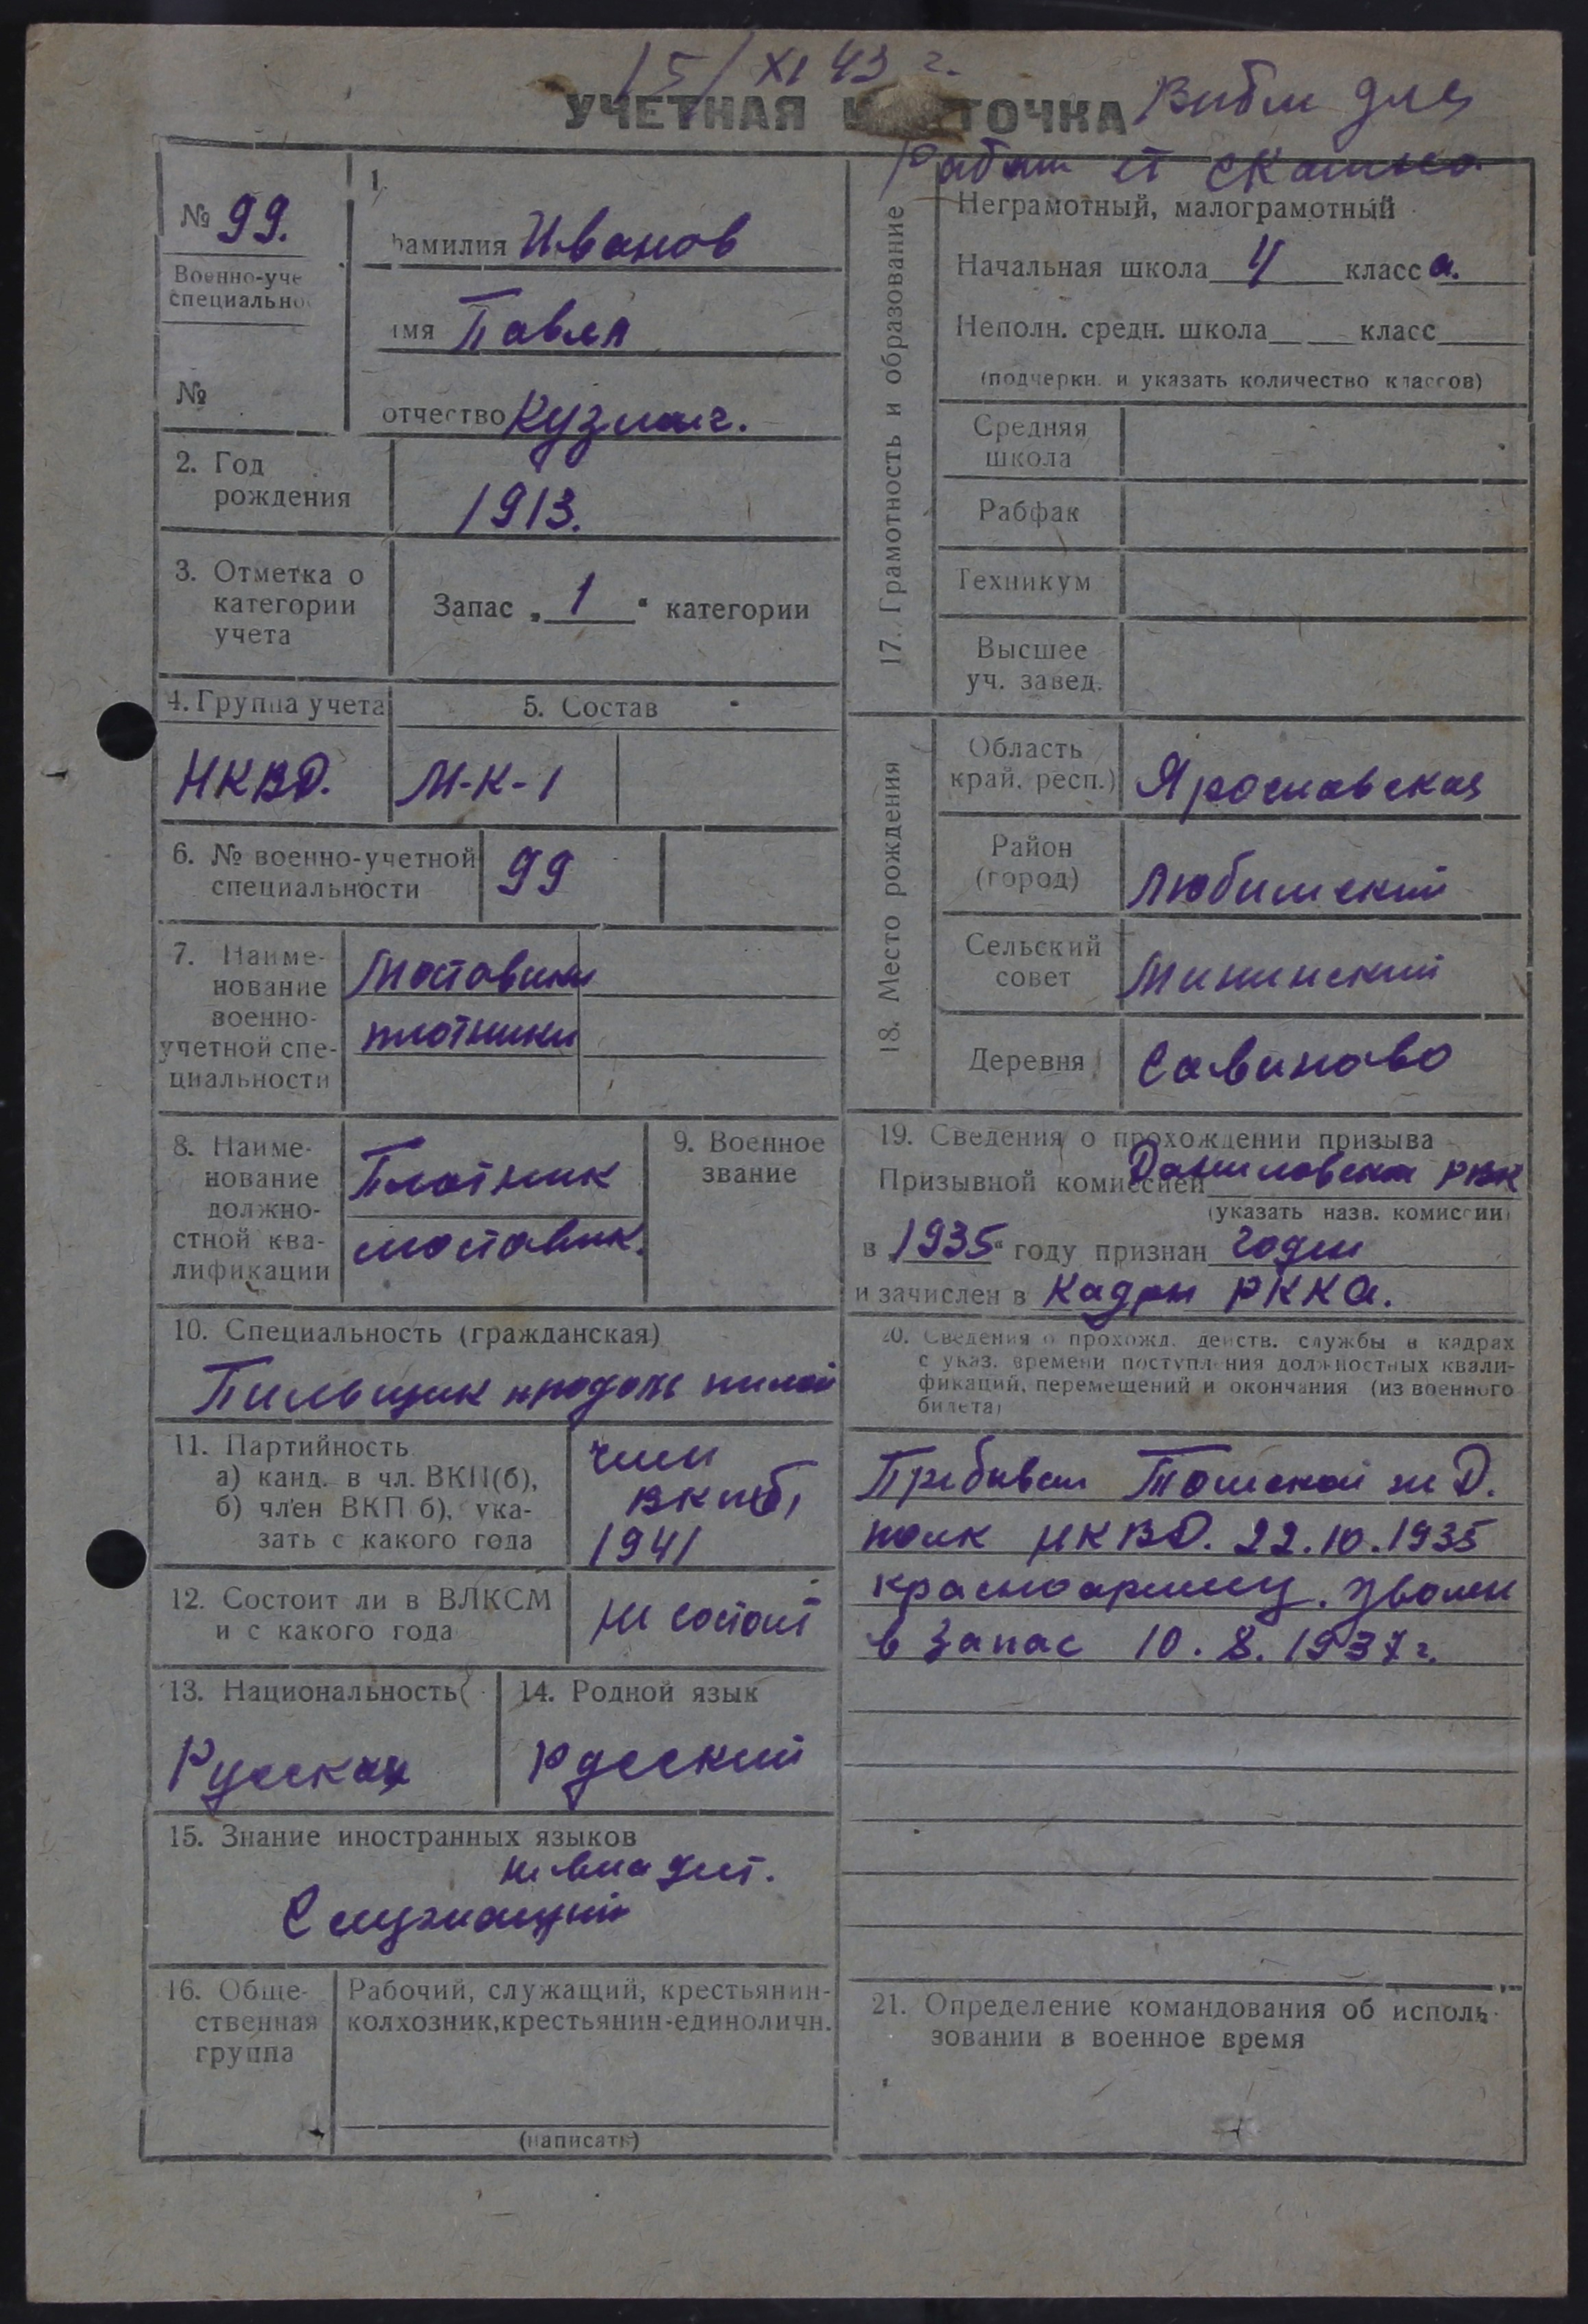 15/XI 43 г.
УЧЕТНАЯ ТОЧКА
для
№ 99.
Военно-уче
специально
№
1.
амилия Иванов
имя Павел
отчество Кузмич.
2. Год
рождения
1913.
3. Отметка о
категории
учета
Запас „ 1 " категории
4. Группа учета
НКВД.
5. Состав
М-К-1
6. № военно-учетной
специальности
99
7. Наиме-
нование
военно-
учетной спе-
циальности
Мостовики
плотники
8. Наиме-
нование
должно-
стной ква-
лификации
Плотник
мостовик.
9. Военное
звание
10. Специальность (гражданская)
Пильщик продоль пилой
11. Партийность
а) канд. в чл. ВКП(б),
б) член ВКП б), ука-
зать с какого года
член
ВКП(б)
1941
12. Состоит ли в ВЛКСМ
и с какого года
не состоит
13. Национальность
Русская
14. Родной язык
Русский
15. Знание иностранных языков
не владеет.
Служащий
16. Обще-
ственная
группа
Рабочий, служащий, крестьянин-
колхозник, крестьянин-единоличн.
(написать)
17. Грамотность и образование
Неграмотный, малограмотный
Начальная школа 4 класса.
Неполн. средн. школа класс
(подчеркн. и указать количество классов)
Средняя
школа
Рабфак
Техникум
Высшее
уч. завед.
18. Место рождения
Область
край, респ.)
Ярославская
Район
(город)
Любимский
Сельский
совет
Мининский
Деревня
Савиново
19. Сведения о прохождении призыва
Призывной комиссией Даниловским РВК
(указать назв. комиссии)
в 1935 году признан годен
и зачислен в Кадры РККА.
20. Сведения о прохожд. действ. службы в кадрах
с указ. времени поступления должностных квали-
фикаций, перемещений и окончания (из военного
билета)
Прибывал Томской ж Д.
полк НКВД. 22.10.1935
красноармеец. Уволен
в запас 10.8.1937 г.
21. Определение командования об исполь-
зовании в военное время